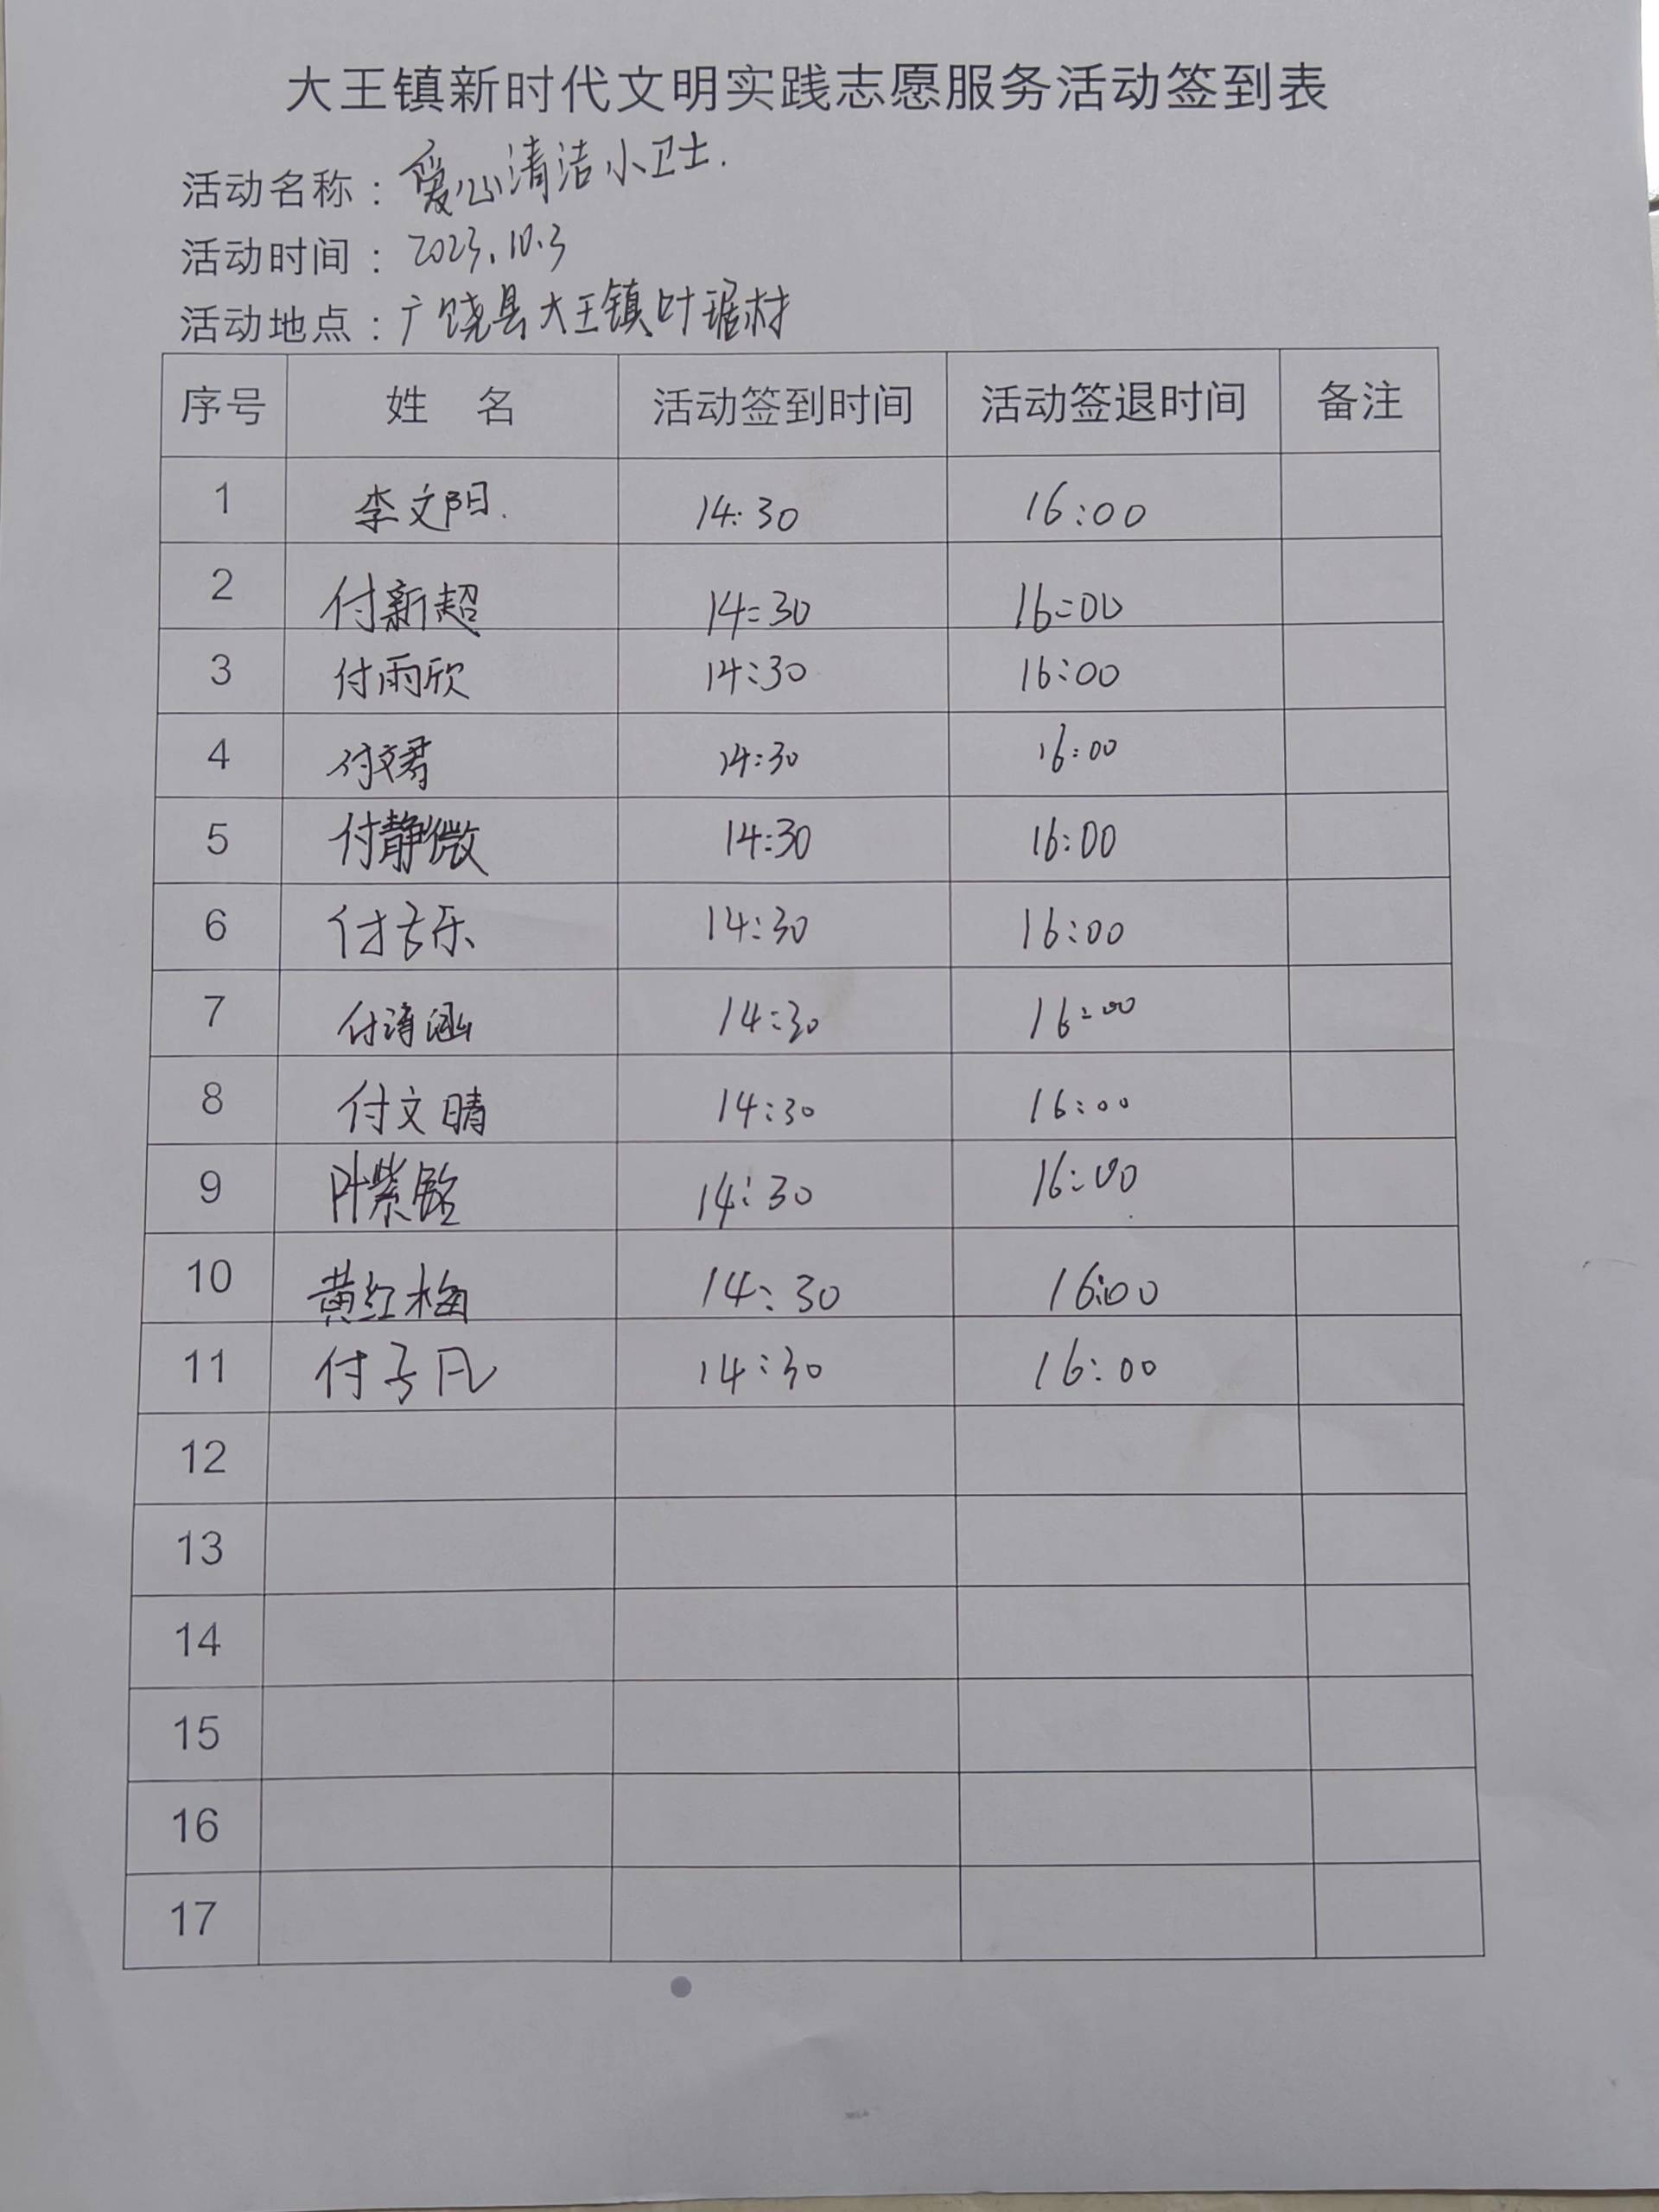 大王镇新时代文明实践志愿服务活动签到表
活动名称：爱心清洁小卫士.
活动时间：2023.10.3
活动地点：广饶县大王镇叶琚村
序号 姓 名 活动签到时间 活动签退时间 备注
1 李文阳. 14:30 16:00
2 付新超 14:30 16:00
3 付雨欣 14:30 16:00
4 付文君 14:30 16:00
5 付静微 14:30 16:00
6 付音乐 14:30 16:00
7 付涛涵 14:30 16:00
8 付文晴 14:30 16:00
9 叶紫 14:30 16:00
10 黄红梅 14:30 16:00
11 付子凡 14:30 16:00
12
13
14
15
16
17